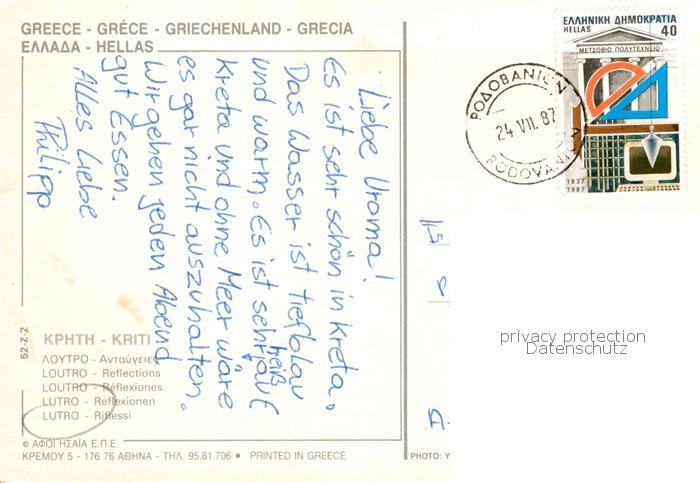 GREECE - GRÉCE - GRIECHENLAND - GRECIA
ΕΛΛΑΔΑ - HELLAS
Liebe Uroma!
Es ist sehr schön in Kreta.
Das Wasser ist tiefblau
und warm. Es ist sehr heiß auf
Kreta und ohne Meer wäre
es gar nicht auszuhalten.
Wir gehen jeden Abend
gut Essen.
Alles Liebe
Philipp
52-Z-2
ΚΡΗΤΗ - KRITI
ΛΟΥΤΡΟ - Ανταύγειες
LOUTRO - Reflections
LOUTRO - Réflexiones
LUTRO - Reflexionen
LUTRO - Riflessi
© ΑΦΟΙ ΗΣΑΪΑ Ε.Π.Ε.
ΚΡΕΜΟΥ 5 - 176 76 ΑΘΗΝΑ - ΤΗΛ. 95.81.706 • PRINTED IN GREECE
PHOTO: Y
ΕΛΛΗΝΙΚΗ ΔΗΜΟΚΡΑΤΙΑ
HELLAS 40
ΜΕΤΣΟΒΙΟ ΠΟΛΥΤΕΧΝΕΙΟ
1837
1987
ΡΟΔΟΒΑΝΙΟΝ
24 VII. 87
privacy protection
Datenschutz